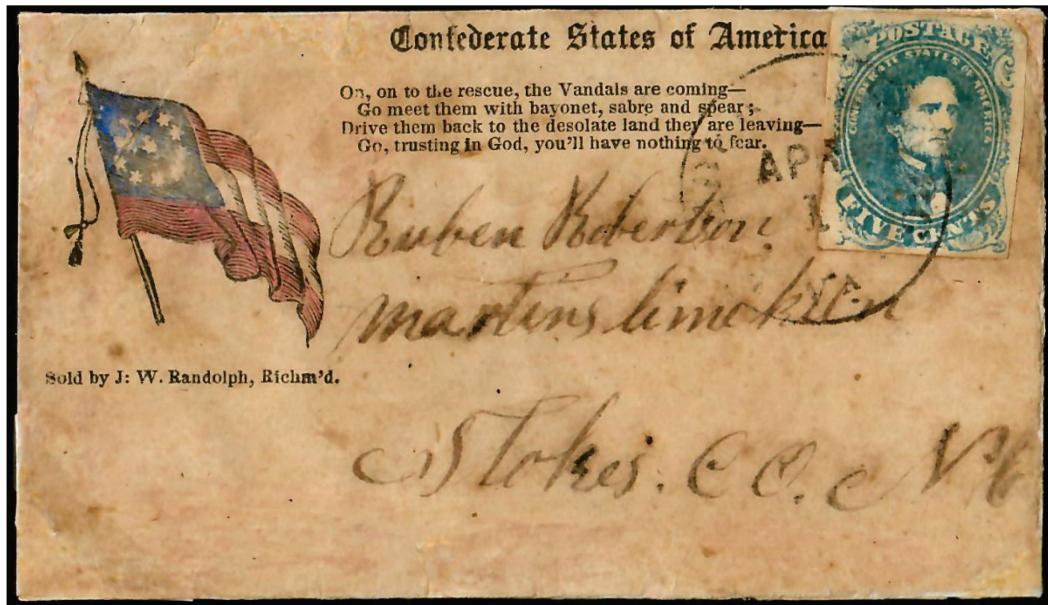 Confederate States of America
On, on to the rescue, the Vandals are coming—
Go meet them with bayonet, sabre and spear;
Drive them back to the desolate land they are leaving—
Go, trusting in God, you'll have nothing to fear.
POSTAGE
CONFEDERATE STATES OF AMERICA
FIVE CENTS
APR
1
VA.
Ruben Robertson
martins lime kiln
Sold by J: W. Randolph, Richm'd.
Stokes. CO. NC